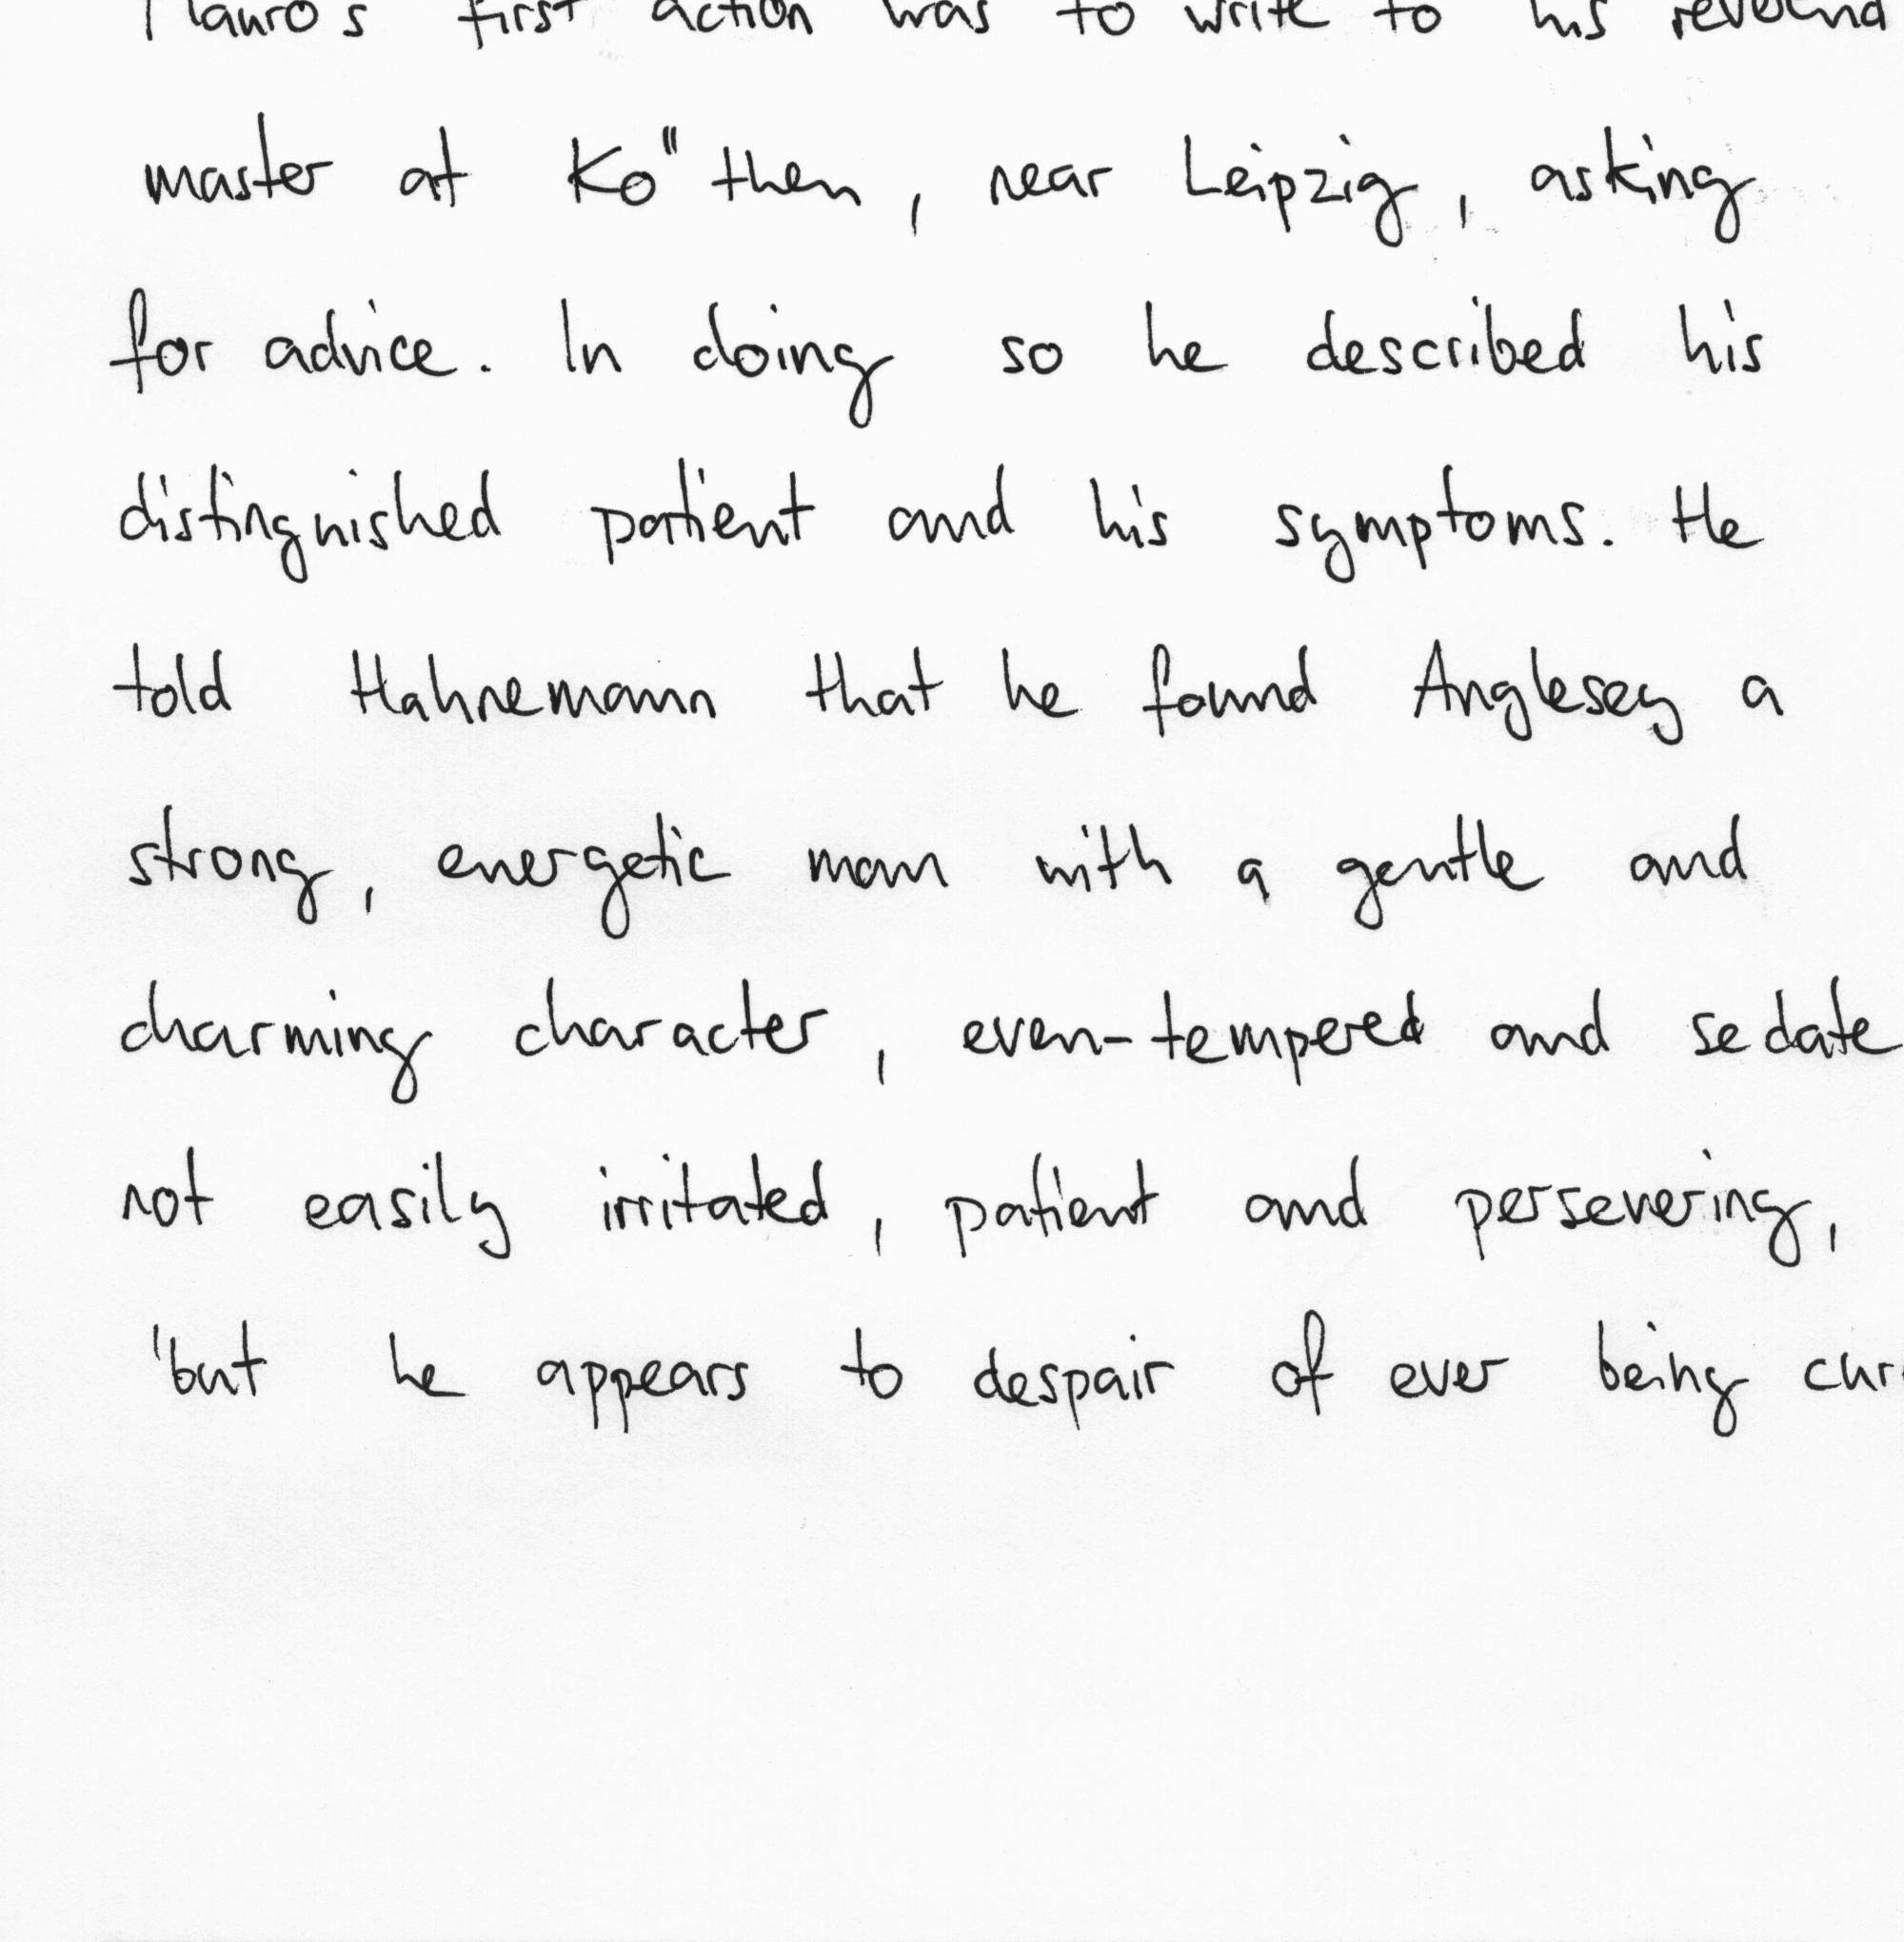 Mauro's first action was to write to his reverend
master at Ko" then, near Leipzig, asking
for advice. In doing so he described his
distinguished patient and his symptoms. He
told Hahnemann that he found Anglesey a
strong, energetic man with a gentle and
charming character, even-tempered and sedate
not easily irritated, patient and persevering,
'but he appears to despair of ever being